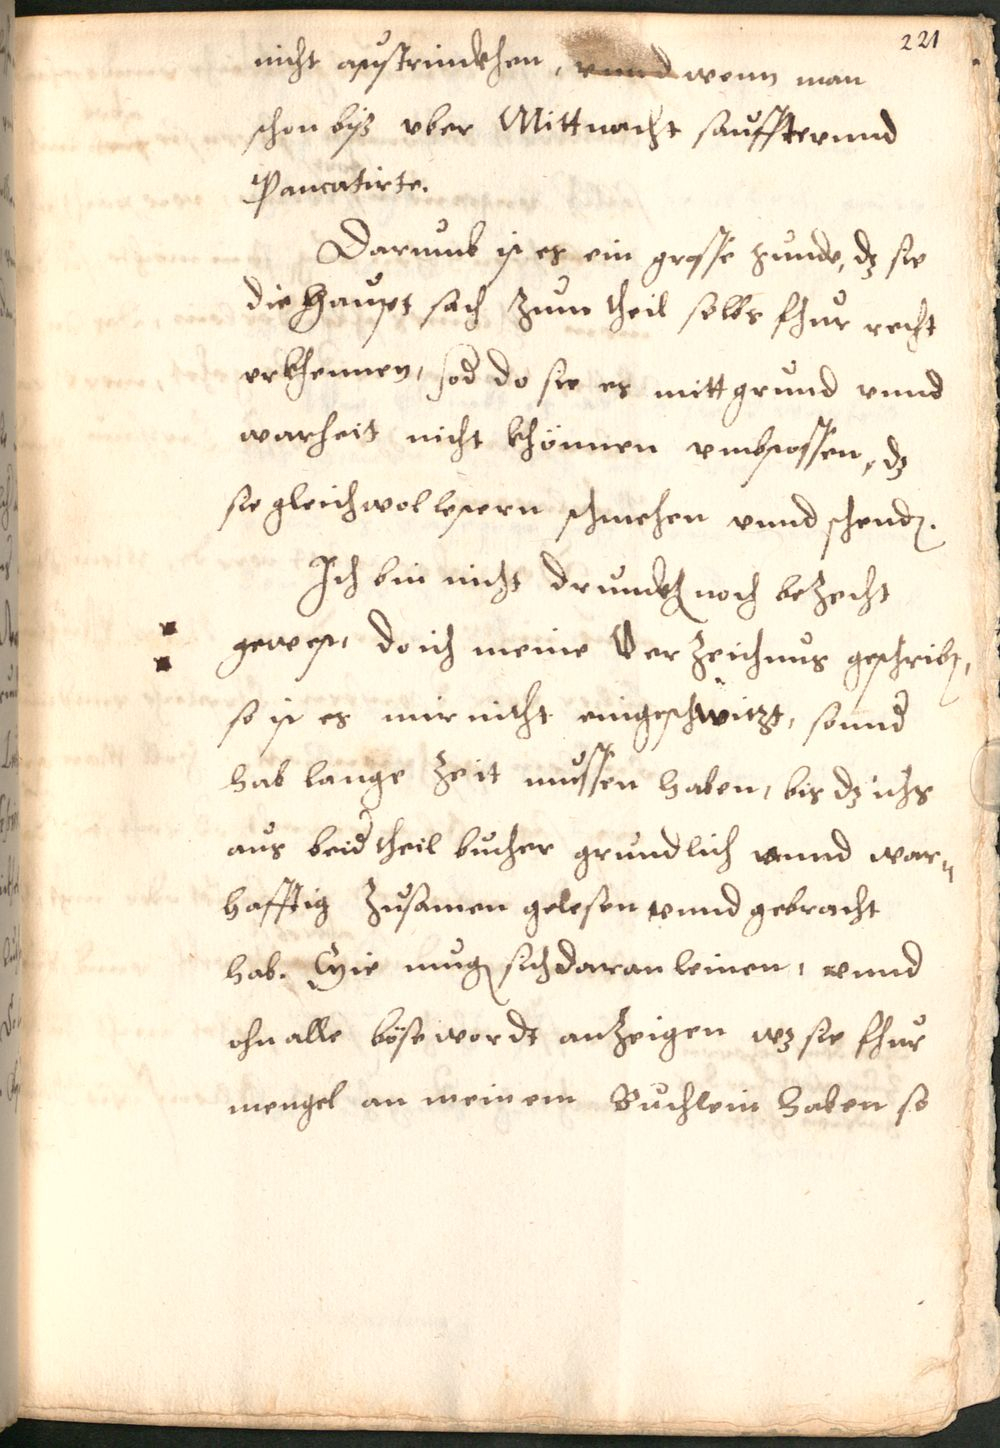 221
nicht austrinckhen, vnnd wenn man
schon biß vber Mittnacht sauffte vnnd
Pancatirte.
Darumb ist es ein grosse sunde, dz sie
die Haupt sach zum theil selbs fhur recht
erkhennen, sod do sie es mitt grund vnnd
warheit nicht khönnen vmbstossen, dz
sie gleichwol lestern schmehen vnnd schend.
Ich bin nicht drunckh noch bezecht
gewest, do ich meine Verzeichnus geschrib,
so ist es mir nicht eingeschwitzt, sonnd
hab lange Zeit mussen haben, bis dz ichs
aus beid theil bucher grundlich vnnd war„
hafftig zusamen gelesen vnnd gebracht
hab. Sie mug sich daran leinen, vnnd
ohn alle böse wordt anzeigen wz sie fhur
mengel an meinem Buchlein haben so